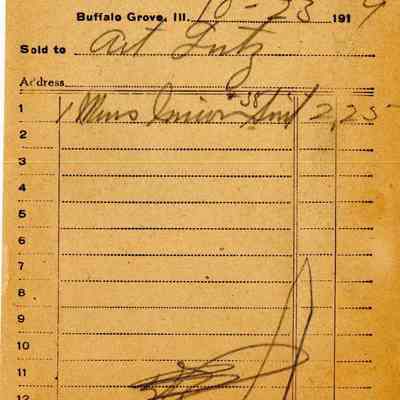 Buffalo Grove, Ill. 10-23 1919
Sold to Art Lutz
Address
1 1 Mens Union #38 Suit 2,25
2
3
4
5
6
7
8
9
10
11
12